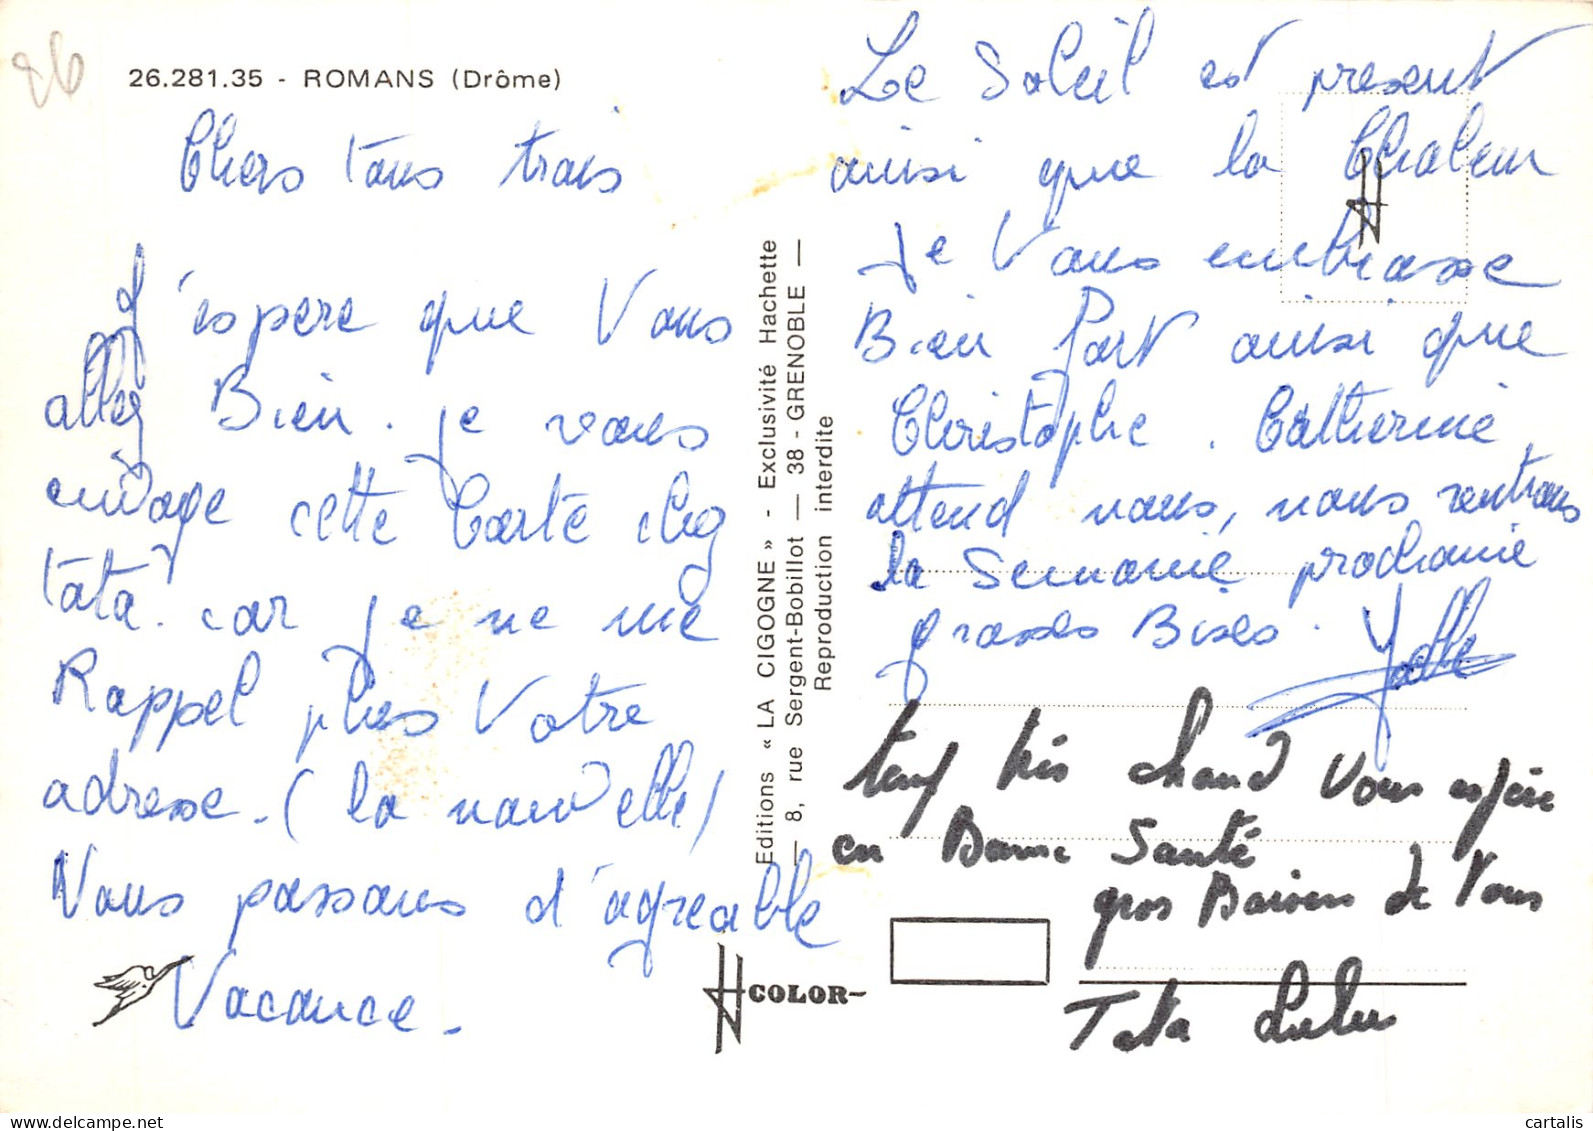 26
26.281.35 - ROMANS (Drôme)
Chers tous trois
J'espere que Vous
allez Bien. je vous
envoye cette Carte chez
tata. car je ne me
Rappel plus Votre
adresse. (la nouvelle)
Nous passons d'agreable
Vacance.
Editions « LA CIGOGNE » - Exclusivité Hachette
— 8, rue Sergent-Bobillot — 38 - GRENOBLE —
Reproduction interdite
COLOR
Le Soleil est present
ainsi que la Chaleur
je Vous embrasse
Bien fort ainsi que
Christophe. Catherine
attend nous, nous rentrons
la Semaine prochaine
grosses Bises.
très chaud Vous espère
en Bonne Santé
gros Baisers de Vous
Tata Lulu
cartalis